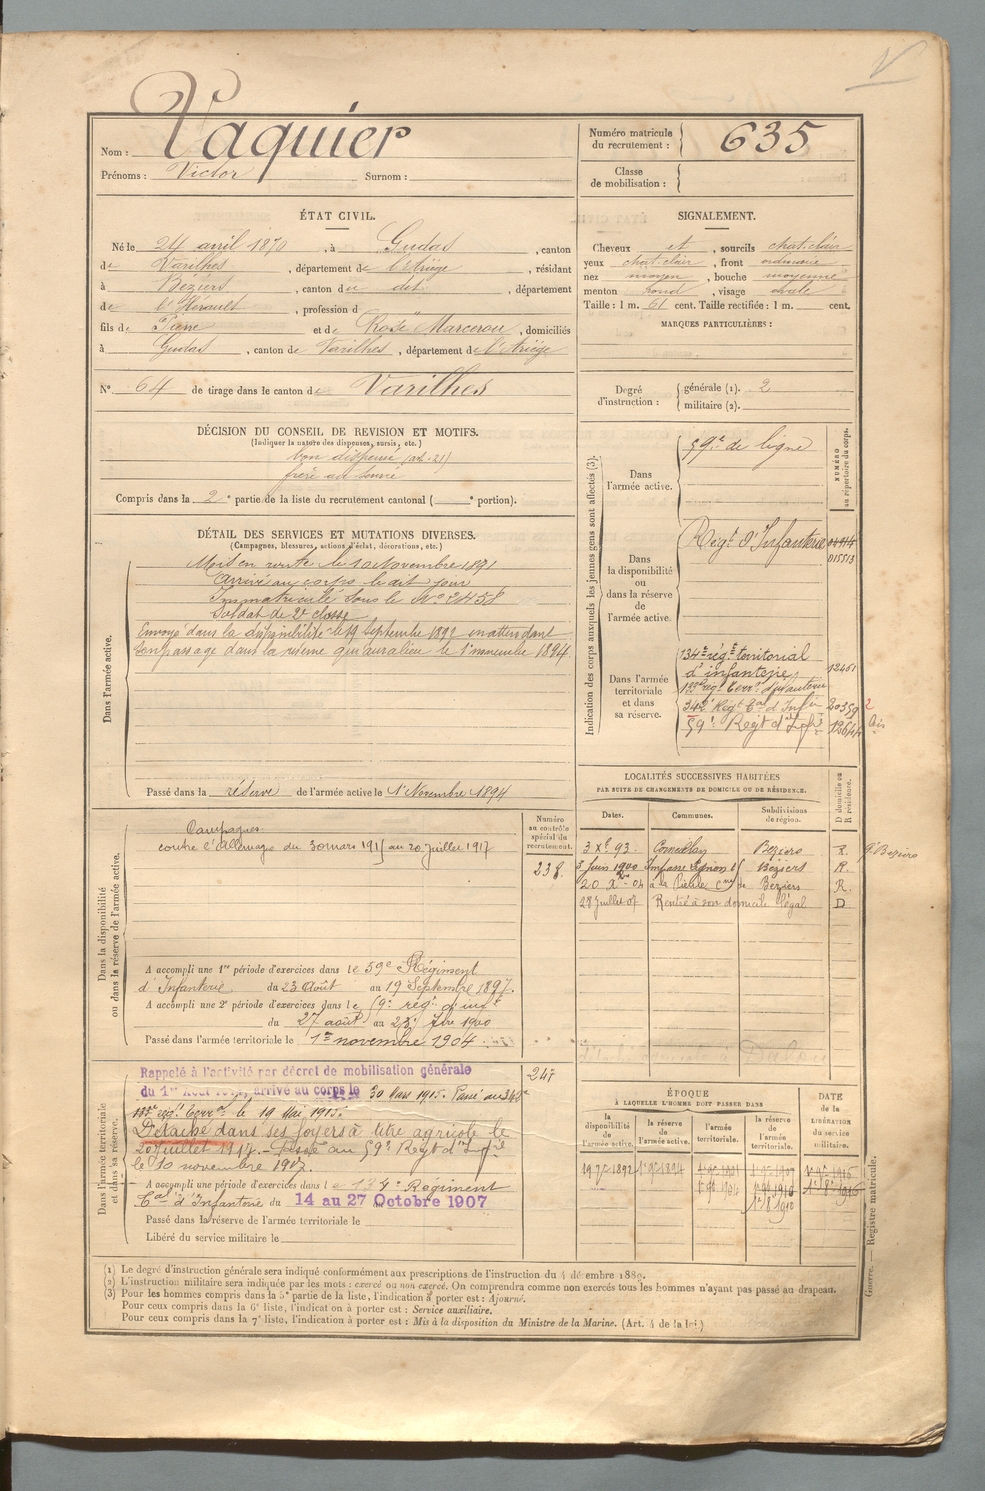 V
Nom : Vaquier
Prénoms : Victor Surnom :
Numéro matricule du recrutement : 635
Classe de mobilisation :
ÉTAT CIVIL.
Né le 24 avril 1870, à Gudas, canton
de Varilhes, département de l'Ariège, résidant
à Béziers, canton du dit, département
de l'Hérault, profession d
fils de Pierre et de Rose Marcerou, domiciliés
à Gudas, canton de Varilhes, département de l'Ariège
N° 64 de tirage dans le canton de Varilhes
SIGNALEMENT.
Cheveux et, sourcils chat. clair
yeux chat. clair, front ordinaire
nez moyen, bouche moyenne
menton rond, visage ovale
Taille : 1 m. 61 cent. Taille rectifiée : 1 m. cent.
MARQUES PARTICULIÈRES :
Degré d'instruction : générale (1). 2
militaire (2).
DÉCISION DU CONSEIL DE REVISION ET MOTIFS.
(Indiquer la nature des dispenses, sursis, etc.)
bon dispensé (art. 21)
frère au service
Compris dans la 2e partie de la liste du recrutement cantonal ( e portion).
DÉTAIL DES SERVICES ET MUTATIONS DIVERSES.
(Campagnes, blessures, actions d'éclat, décorations, etc.)
Dans l'armée active.
Mis en route le 10 Novembre 1891
Arrivé au corps le dit jour
Immatriculé sous le No 2458
Soldat de 2e classe
Envoyé dans la disponibilité le 19 Septembre 1892 en attendant
son passage dans la réserve qui aura lieu le 1er novembre 1894
Passé dans la réserve de l'armée active le 1er Novembre 1894
Indication des corps auxquels les jeunes gens sont affectés (3).
NUMÉRO au répertoire du corps.
Dans l'armée active.
59e de ligne
Dans la disponibilité ou dans la réserve de l'armée active.
Régt d'Infanterie
015513
Dans l'armée territoriale et dans sa réserve.
134e régt territorial
d'infanterie 12451
133e régt terrl d'infanterie
342e Régt Cal d'Infie 20559
59e Régt d'Infie 12644
Dans la disponibilité ou dans la réserve de l'armée active.
Numéro au contrôle spécial du recrutement.
Campagnes
contre l'Allemagne du 30 mars 1915 au 20 Juillet 1917
238.
A accompli une 1re période d'exercices dans le 59e Régiment
d'Infanterie du 23 Août au 19 Septembre 1897.
A accompli une 2e période d'exercices dans le 59e régt d'inft
du 27 août au 23 7bre 1900
Passé dans l'armée territoriale le 1er novembre 1904
LOCALITÉS SUCCESSIVES HABITÉES
PAR SUITE DE CHANGEMENTS DE DOMICILE OU DE RÉSIDENCE.
Dates. Communes. Subdivisions de région. D domicile ou R résidence.
3 Xe 93. Corneilhan Beziers R.
3 Juin 1900 Impasse Béziers R.
20 Xbre 04 Beziers R.
28 Juillet 07 Rentré à son domicile légal D
Dans l'armée territoriale et dans sa réserve.
Rappelé à l'activité par décret de mobilisation générale
du 1er Août arrivé au corps le 30 Mars 1915. Passé au 342e
le 19 Mai 1915.
247
Détaché dans ses foyers à titre agricole le
20 Juillet 1917. Passé au 59e Régt d'Infie
le 10 novembre 1917.
A accompli une période d'exercices dans le 134e Régiment
Cal d'Infanterie du 14 au 27 Octobre 1907
Passé dans la réserve de l'armée territoriale le
Libéré du service militaire le
ÉPOQUE
À LAQUELLE L'HOMME DOIT PASSER DANS
la disponibilité de l'armée active. la réserve de l'armée active. l'armée territoriale. la réserve de l'armée territoriale. DATE de la LIBÉRATION du service militaire.
19 7e 1892
Guerre. — Registre matricule.
(1) Le degré d'instruction générale sera indiqué conformément aux prescriptions de l'instruction du 4 décembre 1889.
(2) L'instruction militaire sera indiquée par les mots : exercé ou non exercé. On comprendra comme non exercés tous les hommes n'ayant pas passé au drapeau.
(3) Pour les hommes compris dans la 5e partie de la liste, l'indication à porter est : Ajourné.
Pour ceux compris dans la 6e liste, l'indication à porter est : Service auxiliaire.
Pour ceux compris dans la 7e liste, l'indication à porter est : Mis à la disposition du Ministre de la Marine. (Art. 4 de la loi.)